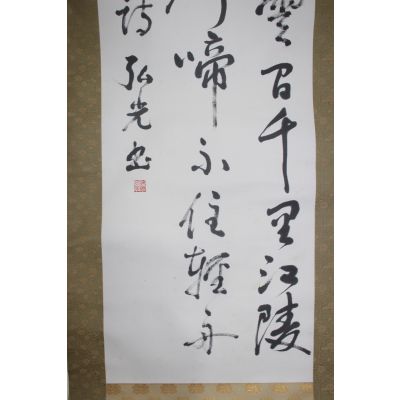 雲間千里江陵
啼不住輕舟
詩 弘光書